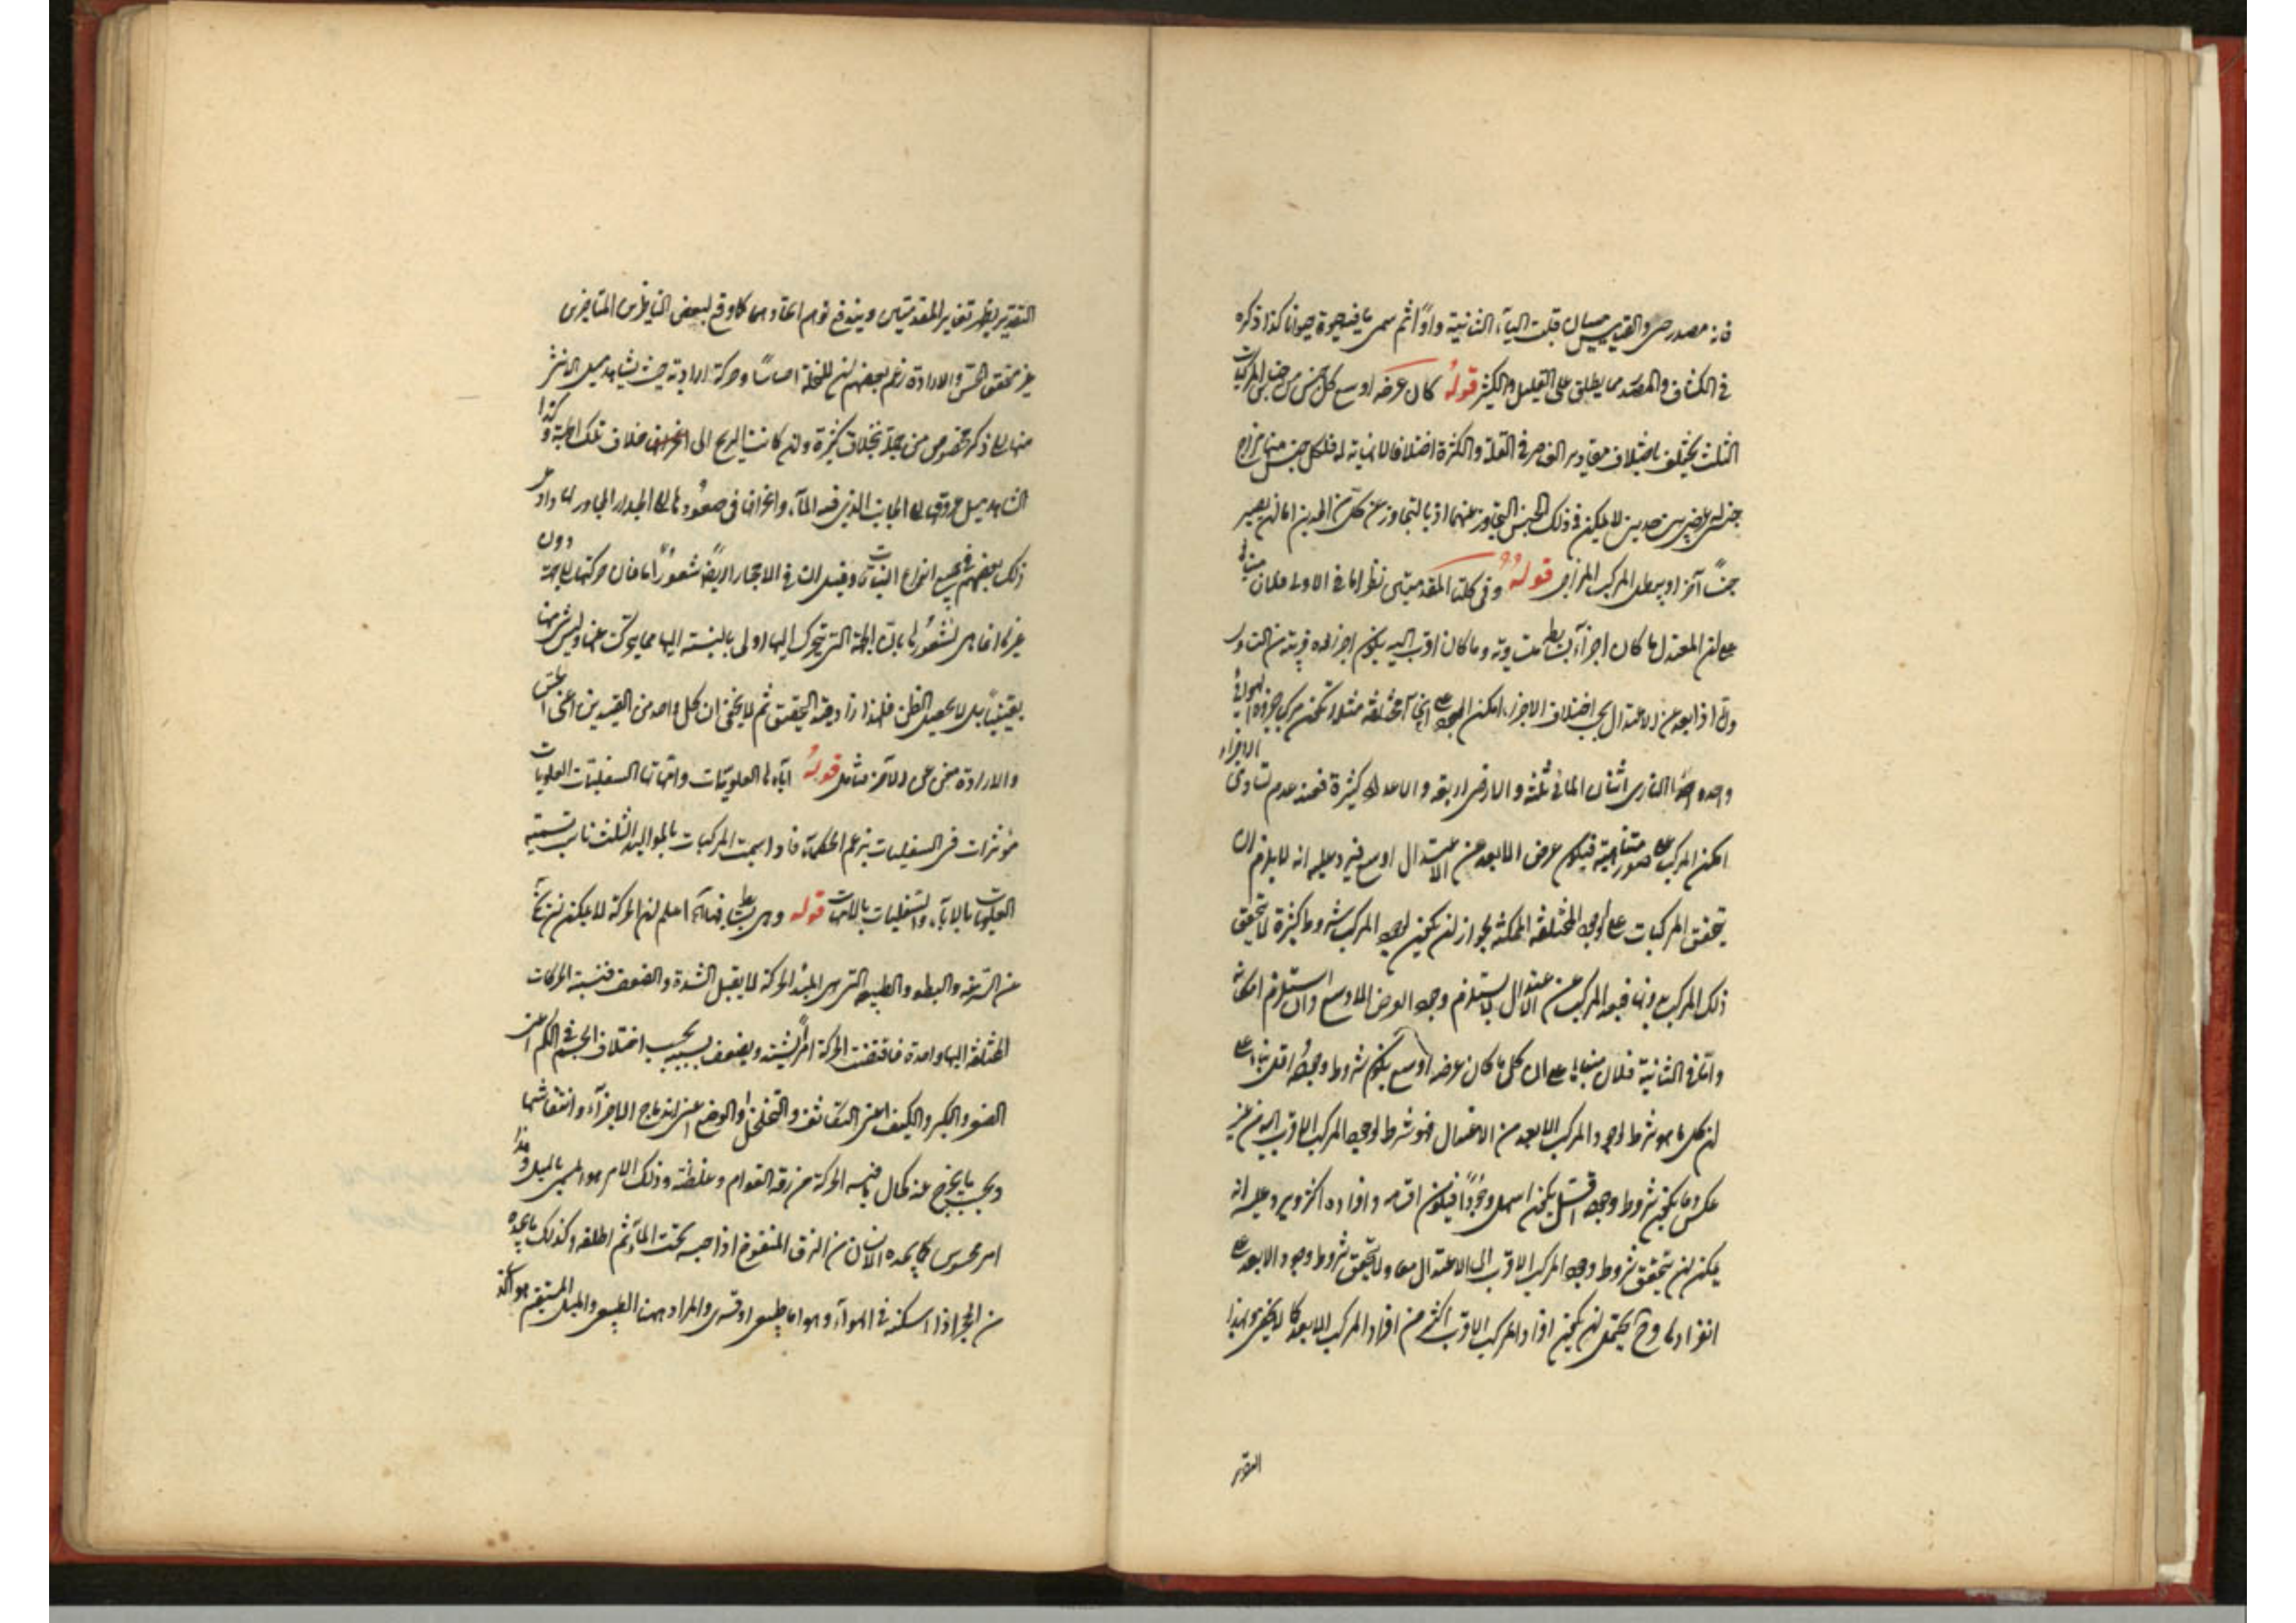 فانه مصدر حي والقياس حييان قلبت الياء الثانية واوا ثم سمى ما فيه حيوة حيوانا كذا ذكره
في الكشاف والمصدر مما يطلق على القليل والكثير قوله كان عرضه اوسع كل جنس من اجناس المركبات
الثلث يختلف باختلاف مقادير العناصر في القلة والكثرة اختلافا لا نهاية له فلكل جنس منها مزاج
جنسي عرضي بين حدين لا يمكن في ذلك الجنس التجاوز عنهما اذ بالتجاوز عن كل من الحدين اما ان يصير
جنسا آخر او يبطل المركب المزاجي قوله وفي كلتا المقدمتين نظر اما في الاولى فلان مبناها
على ان المعتدل ما كان اجزآء بسائطه متساوية وما كان اقرب اليه يكون اجزاؤه قريبة من التساوي
واما اذا بعد عن الاعتدال بحسب اختلاف الاجزاء امكن الوجود على انحآء مختلفة مثلا يمكن مركب جزؤه الهوائي
واحد والناري اثنان والمائي ثلثة والارضي اربعة والاعداد كثيرة فعند عدم تساوي الاجزاء
امكن المركب على صور متناهية فيكون عرض الابعد عن الاعتدال اوسع فيرد عليه انه لا يلزم ان
يتحقق المركبات على الوجوه المختلفة الممكنة لجواز ان يكون لوجود المركب شروط كثيرة لا يتحقق
ذلك المركب بدونها فبعد المركب عن الاعتدال لا يستلزم وجود العرض الاوسع وان استلزم امكانه
واما في الثانية فلان مبناها على ان كل ما كان عرضه اوسع يكون شروط وجوده اقل بناء على
ان كل ما هو شرط لوجود المركب الابعد من الاعتدال فهو شرط لوجود المركب الاقرب اليه من غير
عكس وما يكون شروط وجوده اقل يكون اسهل وجودا فيكون اقسامه وافراده اكثر ويرد عليه انه
يمكن ان يتحقق شروط وجود المركب الاقرب الى الاعتدال معا ولا يتحقق شروط وجود الابعد على
انفرادها وح يحتمل ان يكون افراد المركب الاقرب اكثر من افراد المركب الابعد كما لا يخفى وبهذا
التقرير
التقرير يظهر تغاير المقدمتين ويندفع توهم اتحادهما كما وقع لبعض الناظرين المتأخرين
غير متحقق الحس والارادة زعم بعضهم ان للنخلة احساسا وحركة ارادية حيث يشاهد ميل الانثى
منها الى ذكر مخصوص من جملة نخلات كثيرة وان كانت الريح الى خلاف تلك الجهة وكذا
الشاهد ميل عروقها الى الجانب الذي فيه الماء وانحرافها في صعودها الى الجدار المجاور لها وادعى
ذلك بعضهم في جميع انواع النباتات وقيل ان في الاحجار ايضا شعورا ما فان حركتها الى جهة دون
غيرها انما هي لشعورها بان الجهة التي تتحرك اليها اولى بالنسبة اليها مما تحركت عنها وليس شئ منها
يقينيا بل لا يحصل الظن فلهذا زاد قيد التحقيق ثم لا يخفى ان كل واحد من القيدين اعني الحس
والارادة مغن عن الآخر متامل قوله آباءها العلويات وامهاتها السفليات العلويات
مؤثرات في السفليات بزعم الحكماء فاذا سميت المركبات بالمواليد الثلث ناسب تسمية
العلويات بالاباء والسفليات بالامهات قوله وهي بسائط فيها اعلم ان الحركة لا يمكن ان تخلو
عن السرعة والبطؤ والطبيعة التي هي المبدأ للحركة لا يقبل الشدة والضعف فنسبة الحركات
المختلفة اليها واحدة فاقتضت الحركة امرا يشتد ويضعف بحسب اختلاف الجسم في الكم اعني
الصغر والكبر والكيف اعني التكاثف والتخلخل او الوضع اعني اندماج الاجزآء وانتفاشها
وبحسب ما يخرج عنه كحال ما فيه الحركة من رقة القوام وغلظه وذلك الامر هو المسمى بالميل وهذا
امر محسوس كما يجده الانسان من الزق المنفوخ اذا حبسه تحت الماء ثم اطلقه وكذلك ما يجده
من الحجر اذا اسكنه في الهوآء وهو اما طبيعي او قسري والمراد ههنا الطبيعي والميل المستقيم هو الذي